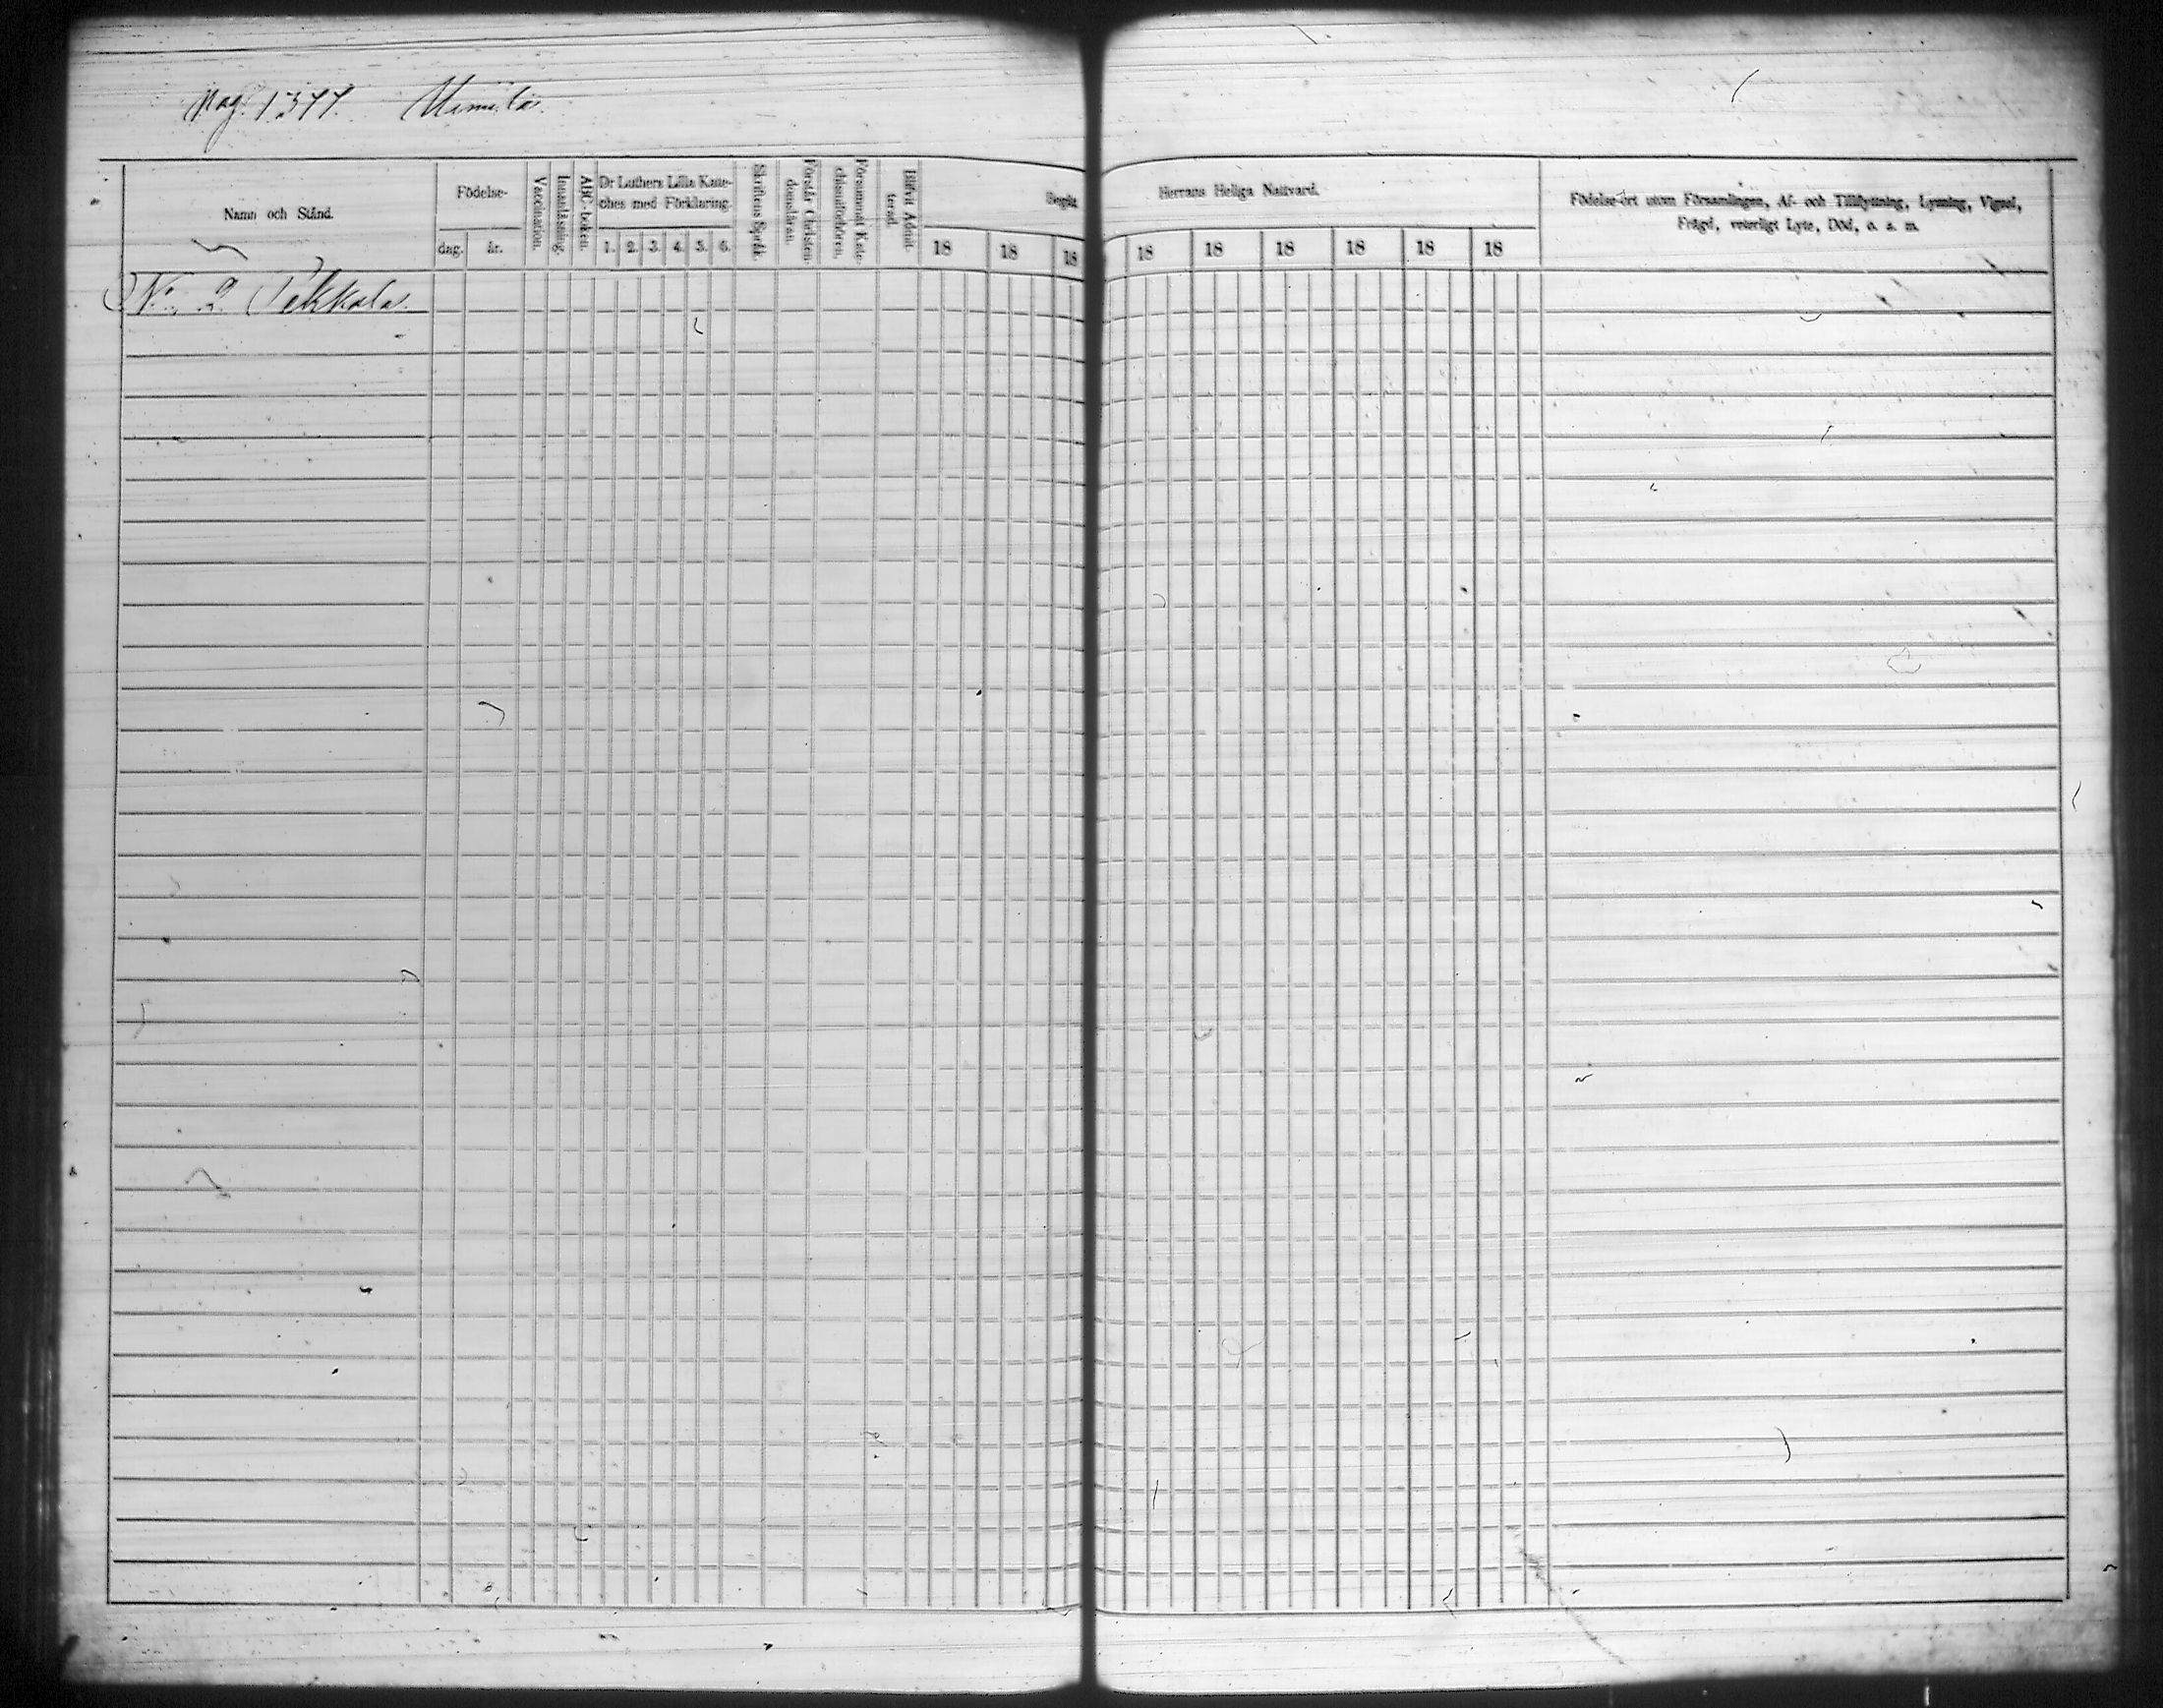 Pag. 1377.
Namn och Stånd.
Födelse-
dag. år.
Vaccination.
Innanläsning.
ABC-boken.
Dr Luthers Lilla Kate-
ches med Förklaring.
1. 2. 3. 4. 5. 6.
Skriftens Språk.
Förstår Christen-
domsläran.
Försummat Kate-
chismiförhören.
Blifvit Admit-
terad.
Begått
Herrans Heliga Nattvard.
18 18 18 18 18 18 18 18 18
Födelse-ort utom Församlingen, Af- och Tillflyttning, Lysning, Vigsel,
Frägd, veterligt Lyte, Död, o. s. m.
No. 2 Pekkala.